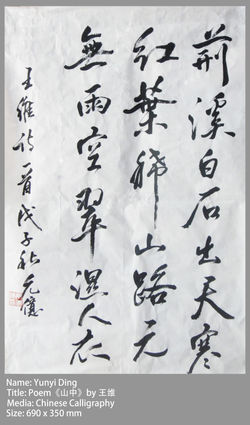 荊溪白石出天寒
紅葉稀山路元
無雨空翠濕人衣
王維詩一首戊子秋
Name: Yunyi Ding
Title: Poem《山中》by 王维
Media: Chinese Calligraphy
Size: 690 x 350 mm